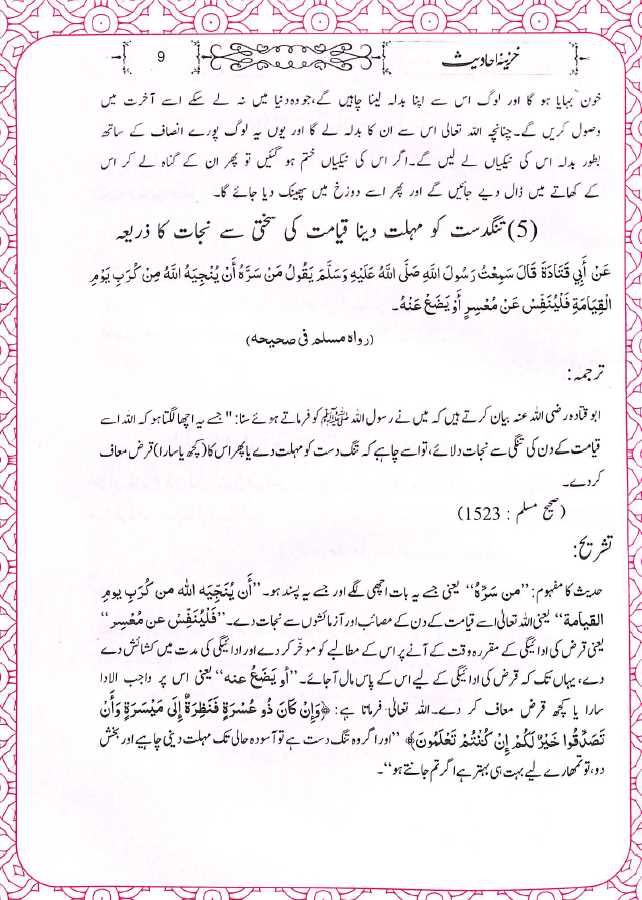 خزینۂ احادیث
9
خون بہایا ہو گا اور لوگ اس سے اپنا بدلہ لینا چاہیں گے، جو وہ دنیا میں نہ لے سکے اسے آخرت میں
وصول کریں گے۔ چنانچہ اللہ تعالی اس سے ان کا بدلہ لے گا اور یوں یہ لوگ پورے انصاف کے ساتھ
بطور بدلہ اس کی نیکیاں لے لیں گے۔ اگر اس کی نیکیاں ختم ہو گئیں تو پھر ان کے گناہ لے کر اس
کے کھاتے میں ڈال دیے جائیں گے اور پھر اسے دوزخ میں پھینک دیا جائے گا۔
(5) تنگدست کو مہلت دینا قیامت کی سختی سے نجات کا ذریعہ
عَنْ أَبِي قَتَادَةَ قَالَ سَمِعْتُ رَسُولَ اللَّهِ صَلَّى اللَّهُ عَلَيْهِ وَسَلَّمَ يَقُولُ مَنْ سَرَّهُ أَنْ يُنْجِيَهُ اللَّهُ مِنْ كُرَبِ يَوْمِ
الْقِيَامَةِ فَلْيُنَفِّسْ عَنْ مُعْسِرٍ أَوْ يَضَعْ عَنْهُ۔
(رواہ مسلم فی صحیحہ)
ترجمہ:
ابو قتادہ رضی اللہ عنہ بیان کرتے ہیں کہ میں نے رسول اللہ ﷺ کو فرماتے ہوئے سنا: "جسے یہ اچھا لگتا ہو کہ اللہ اسے
قیامت کے دن کی تنگی سے نجات دلائے، تو اسے چاہے کہ تنگ دست کو مہلت دے یا پھر اس کا (کچھ یا سارا) قرض معاف
کر دے۔
(صحیح مسلم : 1523)
تشریح:
حدیث کا مفہوم: ’’من سَرَّهُ‘‘ یعنی جسے یہ بات اچھی لگے اور جسے یہ پسند ہو۔ ’’أن يُنَجِّيَه الله من كُرَب يوم
القيامة‘‘ یعنی اللہ تعالیٰ اسے قیامت کے دن کے مصائب اور آزمائشوں سے نجات دے۔ ’’فَلْيُنَفِّس عن مُعْسِر‘‘
یعنی قرض کی ادائیگی کے مقررہ وقت کے آنے پر اس کے مطالبے کو موخر کر دے اور ادائیگی کی مدت میں کشائش دے
دے، یہاں تک کہ قرض کی ادائیگی کے لیے اس کے پاس مال آجائے۔ ’’أو يَضَعْ عنه‘‘ یعنی اس پر واجب الادا
سارا یا کچھ قرض معاف کر دے۔ اللہ تعالیٰ فرماتا ہے: ﴿وَإِن كَانَ ذُو عُسْرَةٍ فَنَظِرَةٌ إِلَى مَيْسَرَةٍ وَأَنْ
تَصَدَّقُوا خَيْرٌ لَكُمْ إِن كُنْتُمْ تَعْلَمُونَ﴾ ’’اور اگر وہ تنگ دست ہے تو آسودہ حالی تک مہلت دینی چاہیے اور بخش
دو، تو تمھارے لیے بہت ہی بہتر ہے اگر تم جانتے ہو‘‘۔